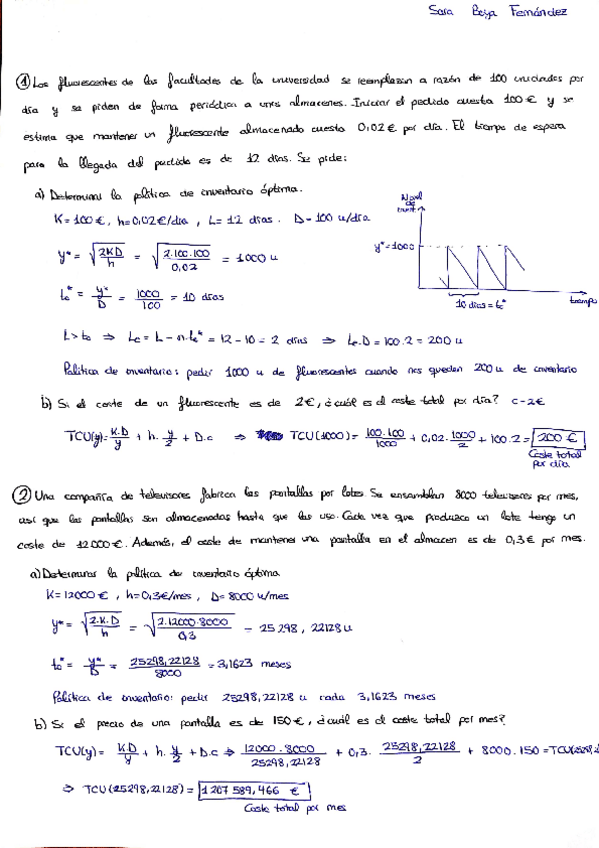 Sara Beja Fernández
① Los fluorescentes de las facultades de la universidad se reemplazan a razón de 100 unidades por
día y se piden de forma periódica a unos almacenes. Iniciar el pedido cuesta 100 € y se
estima que mantener un fluorescente almacenado cuesta 0,02 € por día. El tiempo de espera
para la llegada del pedido es de 12 días. Se pide:
a) Determinar la política de inventario óptima.
K = 100 €, h = 0,02 €/día, L = 12 días. D = 100 u/día
y* = √(2KD/h) = √(2·100·100/0,02) = 1000 u
t₀* = y*/D = 1000/100 = 10 días
Nivel de invent.
y* = 1000
10 días = t₀*
tiempo
L > t₀ ⇒ Le = L - n·t₀* = 12 - 10 = 2 días ⇒ Le·D = 100·2 = 200 u
Política de inventario: pedir 1000 u de fluorescentes cuando nos queden 200 u de inventario
b) Si el coste de un fluorescente es de 2€, ¿cuál es el coste total por día? c = 2€
TCU(y) = K·D/y + h·y/2 + D·c ⇒ TCU(1000) = 100·100/1000 + 0,02·1000/2 + 100·2 = 200 €
Coste total
por día.
② Una compañía de televisores fabrica las pantallas por lotes. Se ensamblan 8000 televisores por mes,
así que las pantallas son almacenadas hasta que las uso. Cada vez que produzco un lote tengo un
coste de 12000 €. Además, el coste de mantener una pantalla en el almacen es de 0,3 € por mes.
a) Determinar la política de inventario óptima
K = 12000 €, h = 0,3€/mes, D = 8000 u/mes
y* = √(2·K·D/h) = √(2·12000·8000/0,3) = 25298,22128 u
t₀* = y*/D = 25298,22128/8000 = 3,1623 meses
Política de inventario: pedir 25298,22128 u cada 3,1623 meses
b) Si el precio de una pantalla es de 150 €, ¿cuál es el coste total por mes?
TCU(y) = K·D/y + h·y/2 + D·c ⇒ 12000·8000/25298,22128 + 0,3·25298,22128/2 + 8000·150 =
⇒ TCU(25298,22128) = 1207589,466 €
Coste total por mes